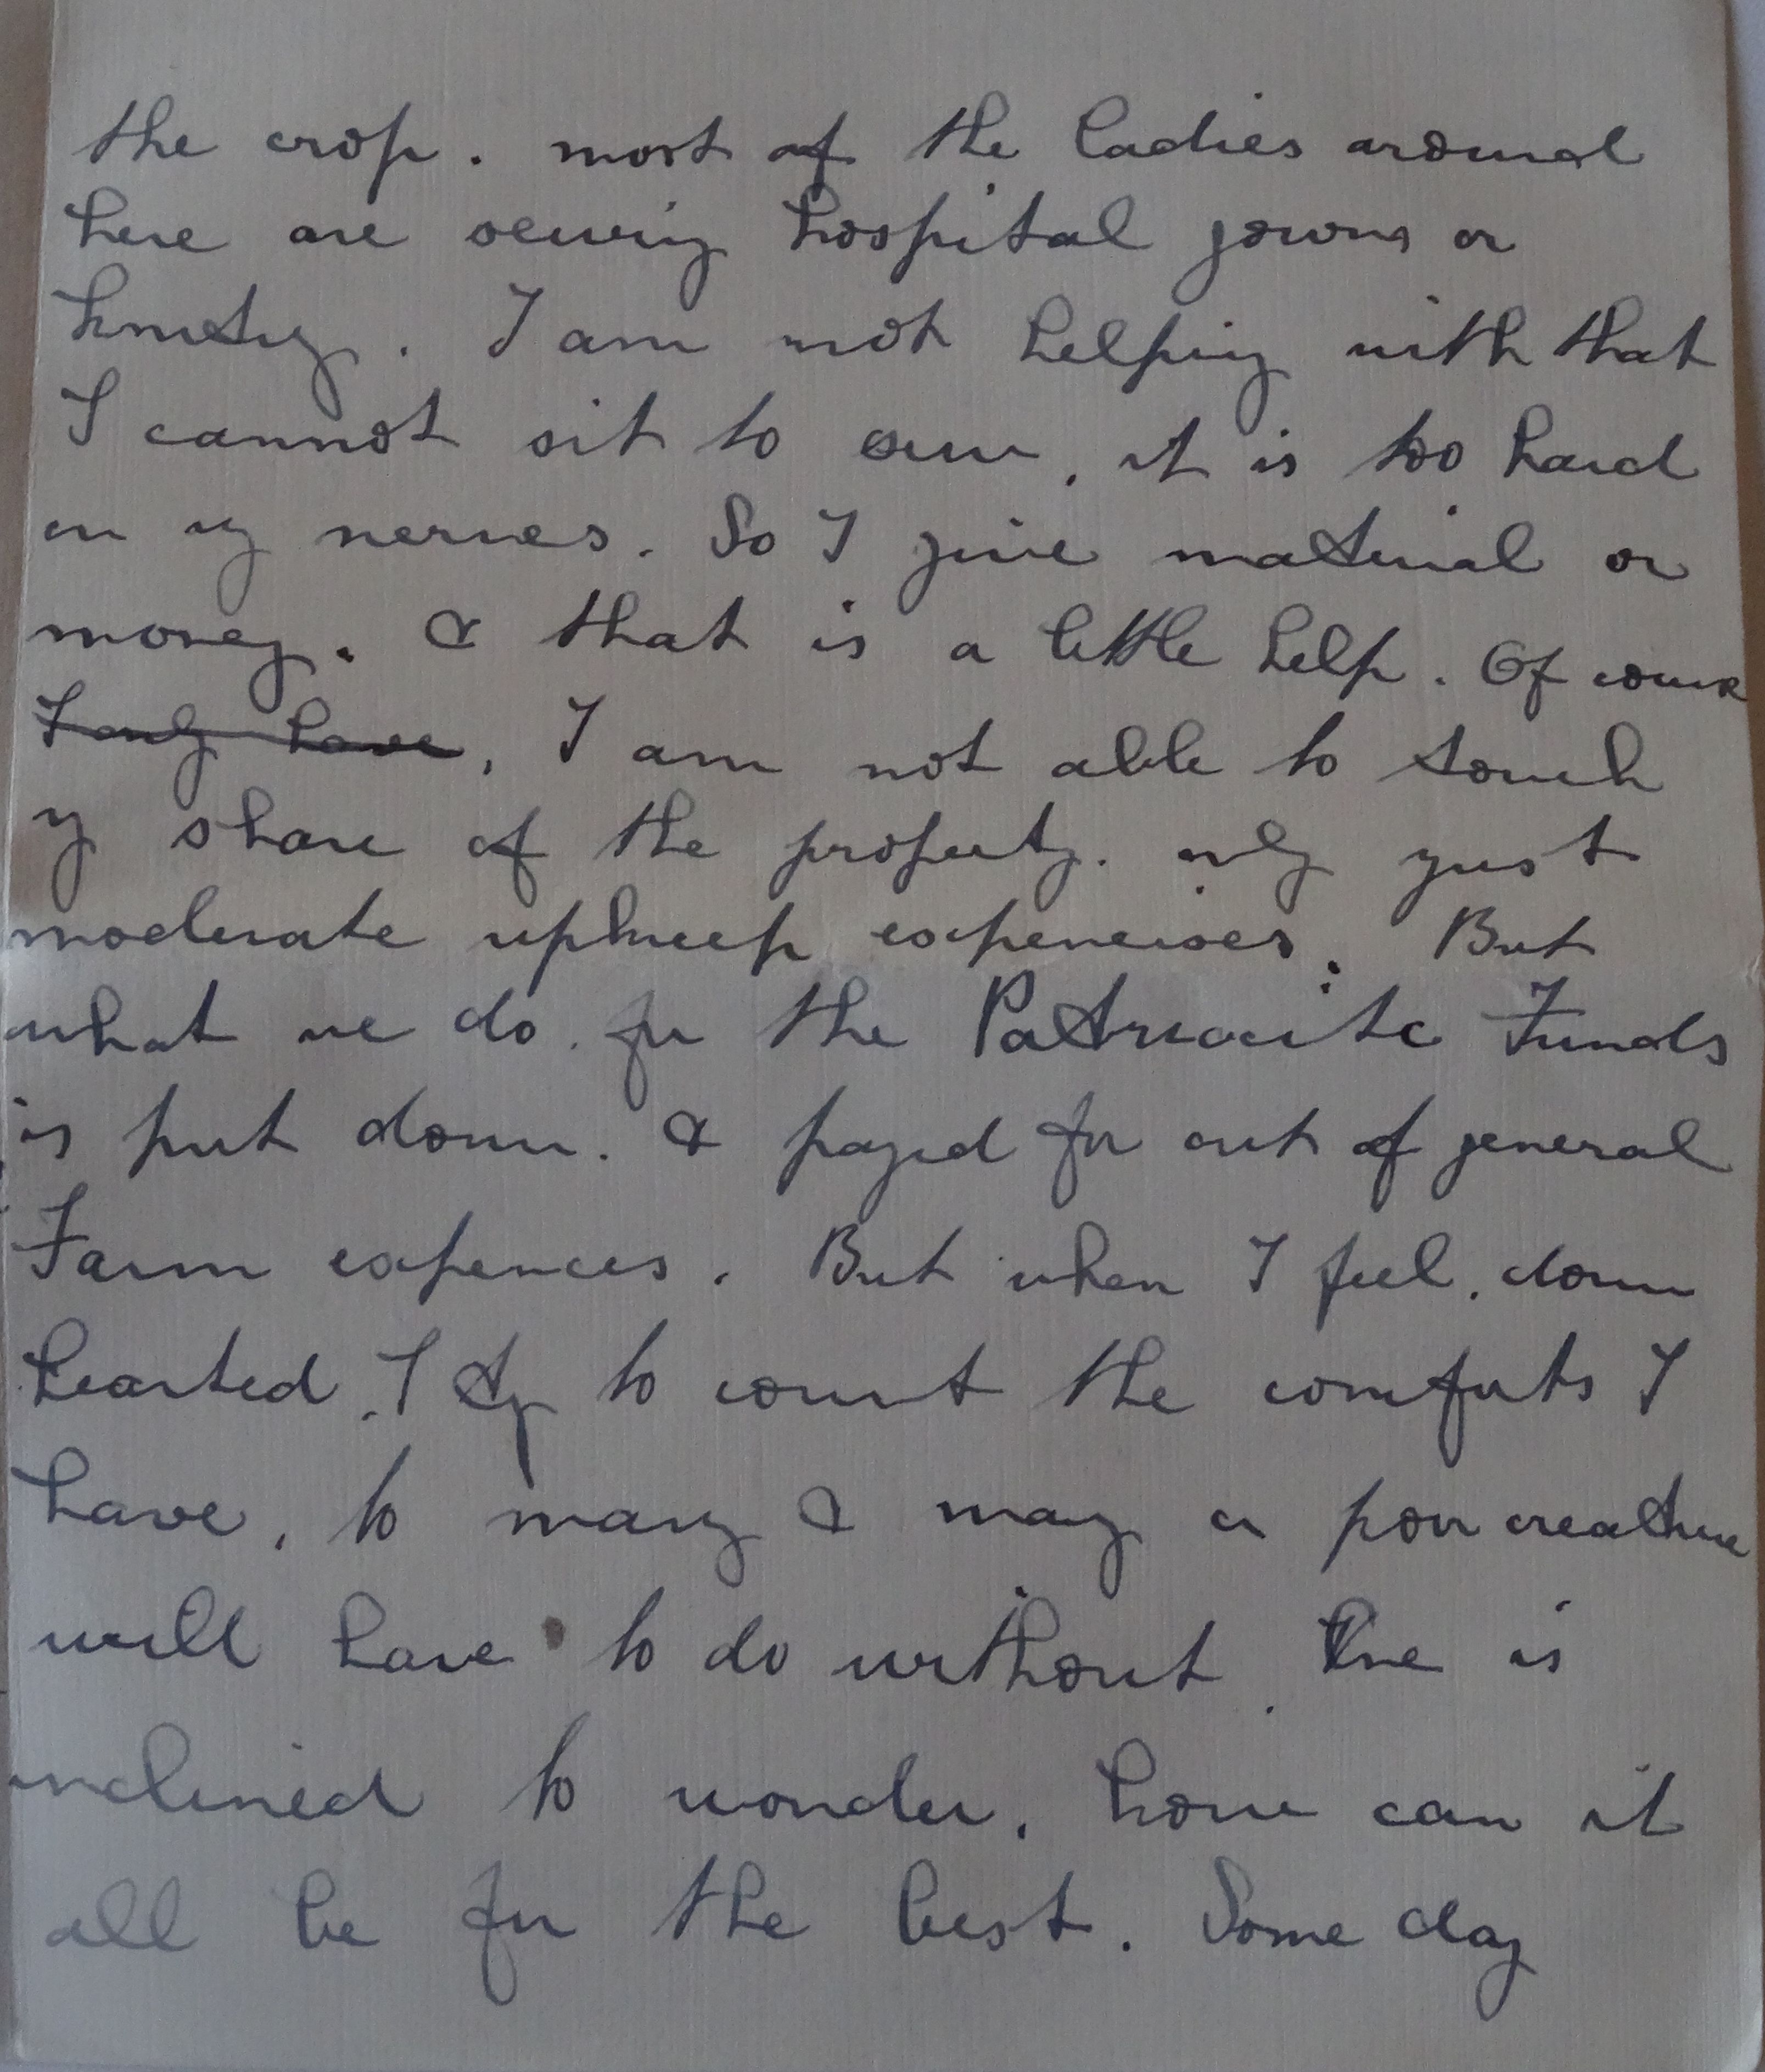 the crop. most of the ladies around
here are sewing hospital gowns or
knitting. I am not helping with that
I cannot sit to sew, it is too hard
on my nerves. So I give material or
money. & that is a little help. Of course
I only have, I am not able to touch
my share of the property. only just
moderate upkeep expeneises. But
what we do. for the Patriocitc Funds
is put down. & payed for out of general
Farm expences. But when I feel. down
hearted. I try to count the comforts I
have, to many & many a poor creature
will have to do without. One is
inclined to wonder, how can it
all be for the best. Some day